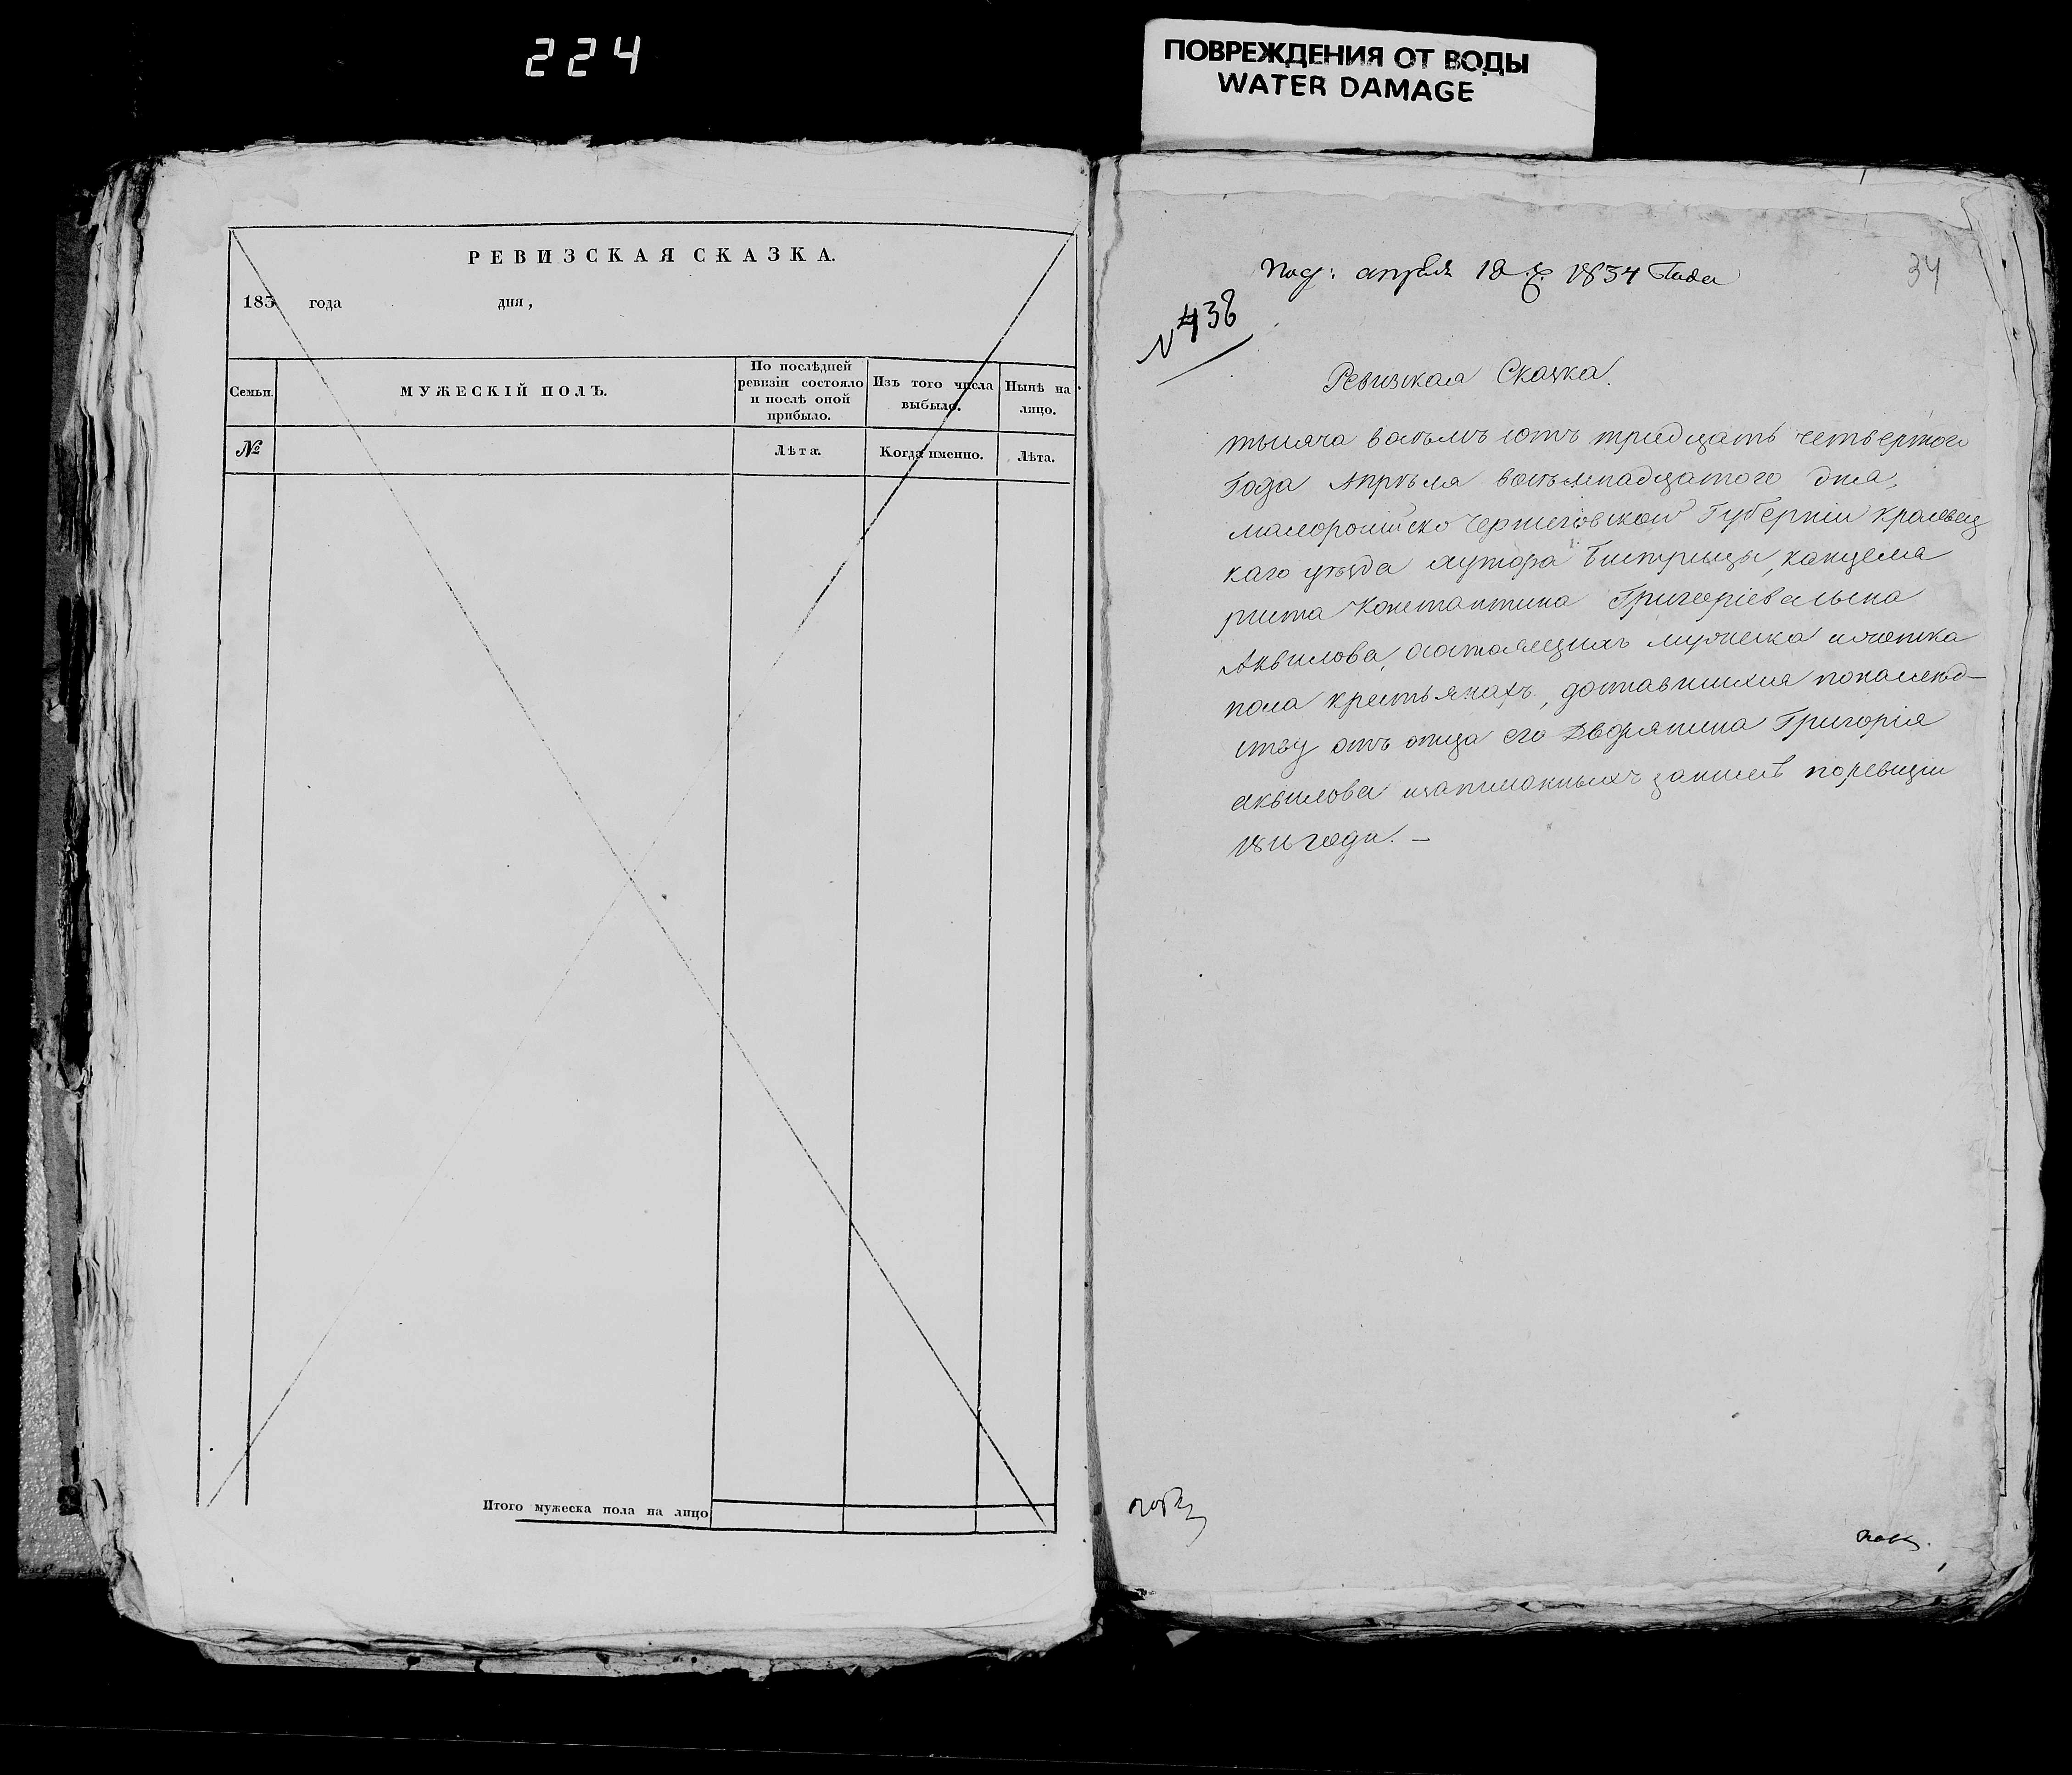 224
ПОВРЕЖДЕНИЯ ОТ ВОДЫ
WATER DAMAGE
РЕВИЗСКАЯ СКАЗКА.
183 года дня,
Семьи.
МУЖЕСКІЙ ПОЛЪ.
По послѣдней
ревизіи состояло
и послѣ оной
прибыло.
Изъ того числа
выбыло.
Нынѣ на
лицо.
№
Лѣта.
Когда именно.
Лѣта.
Итого мужеска пола на лицо
34
Под: апреля 18 д. 1834 Года
N 438
Ревизская Сказка.
тысяча восѣмъ сотъ тридцать четвертого
Года Апрѣля восѣмнадцатого дня,
малоросійско Черниговской Губерніи кролвец
каго уѣзда хутора Бистрицы, канцеля
риста Константина Григоріева сына
Аквилова, состоящихъ мужеска иженска
пола крестьянахъ, доставшихся понаслѣд-
ству отъ отца его Дворянина Григорія
аквилова инаписанныхъ занимъ поревизіи
1811 года. —